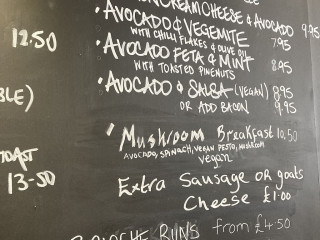 CREAM CHEESE & AVOCADO 9.95
• AVOCADO & VEGEMITE
WITH CHILLI FLAKES & OLIVE OIL 7.95
12.50
• AVOCADO FETA & MINT
WITH TOASTED PINENUTS 8.95
BLE)
• AVOCADO & SALSA (VEGAN) 8.95
OR ADD BACON 9.95
Mushroom Breakfast 10.50
AVOCADO, SPINACH, VEGAN PESTO, MUSHROOM
vegan
TOAST
13-50
Extra Sausage or goats
Cheese £1.00
BRIOCHE BUNS from £4.50